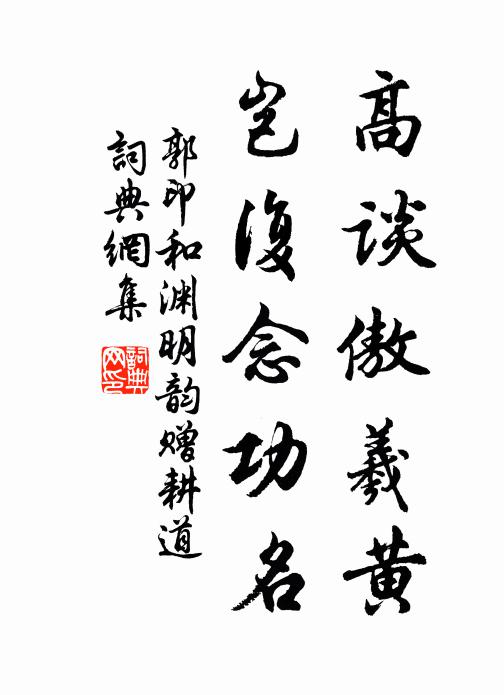 高談傲羲黄
豈復念功名
郭印和渊明韵赠耕道
詞典網集
詞典
网印